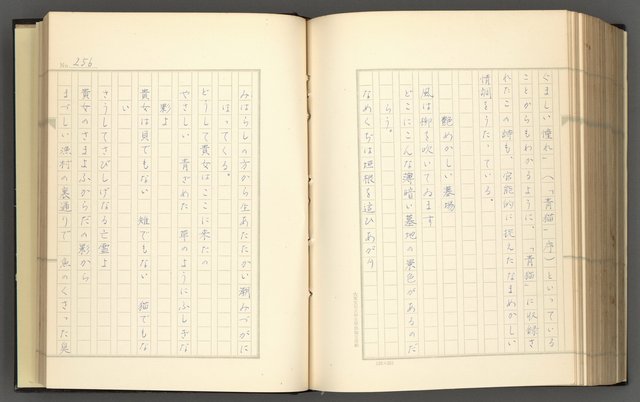 ぐましい憧れ」(「青猫」序)といっている
ことからもわかるように、「青猫」に収録さ
れたこの詩も、官能的に捉えたなまめかしい
情調をうたっている。
艶めかしい墓場
風は柳を吹いてゐます
どこにこんな薄暗い墓地の景色があるのだ
らう。
なめくぢは垣根を這ひあがり
No. 256
みはらしの方から生あたたかい潮みづがに
ほってくる。
どうして貴女はここに来たの
やさしい 青ざめた 草のようにふしぎな
影よ
貴女は貝でもない 雉でもない 猫でもな
い
さうしてさびしげなる亡霊よ
貴女のさまよふからだの影から
まづしい漁村の裏通りで 魚のくさった臭